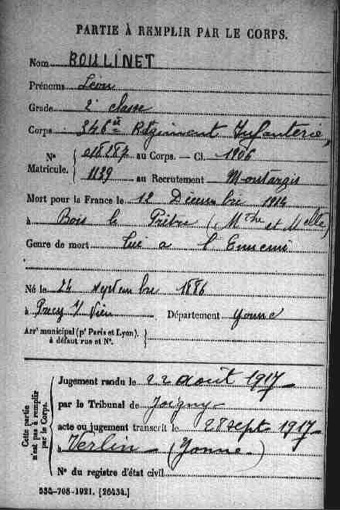 PARTIE À REMPLIR PAR LE CORPS.
Nom BOULINET
Prénoms Léon
Grade 2e classe
Corps 346e Régiment Infanterie,
N° 018287 au Corps. — Cl. 1906
Matricule. 1139 au Recrutement Montargis
Mort pour la France le 12 Décembre 1914
à Bois le Prêtre (Mthe et Mlle)
Genre de mort Tué à l'Ennemi
Né le 24 Septembre 1886
à Précy s/ Vrin Département Yonne
Arrt municipal (pr Paris et Lyon),
à défaut rue et N°.
Cette partie
n'est pas à remplir
par le Corps.
Jugement rendu le 22 août 1917
par le Tribunal de Joigny
acte ou jugement transcrit le 28 sept 1917
à Verlin (Yonne)
N° du registre d'état civil
534-708-1921. [26434.]